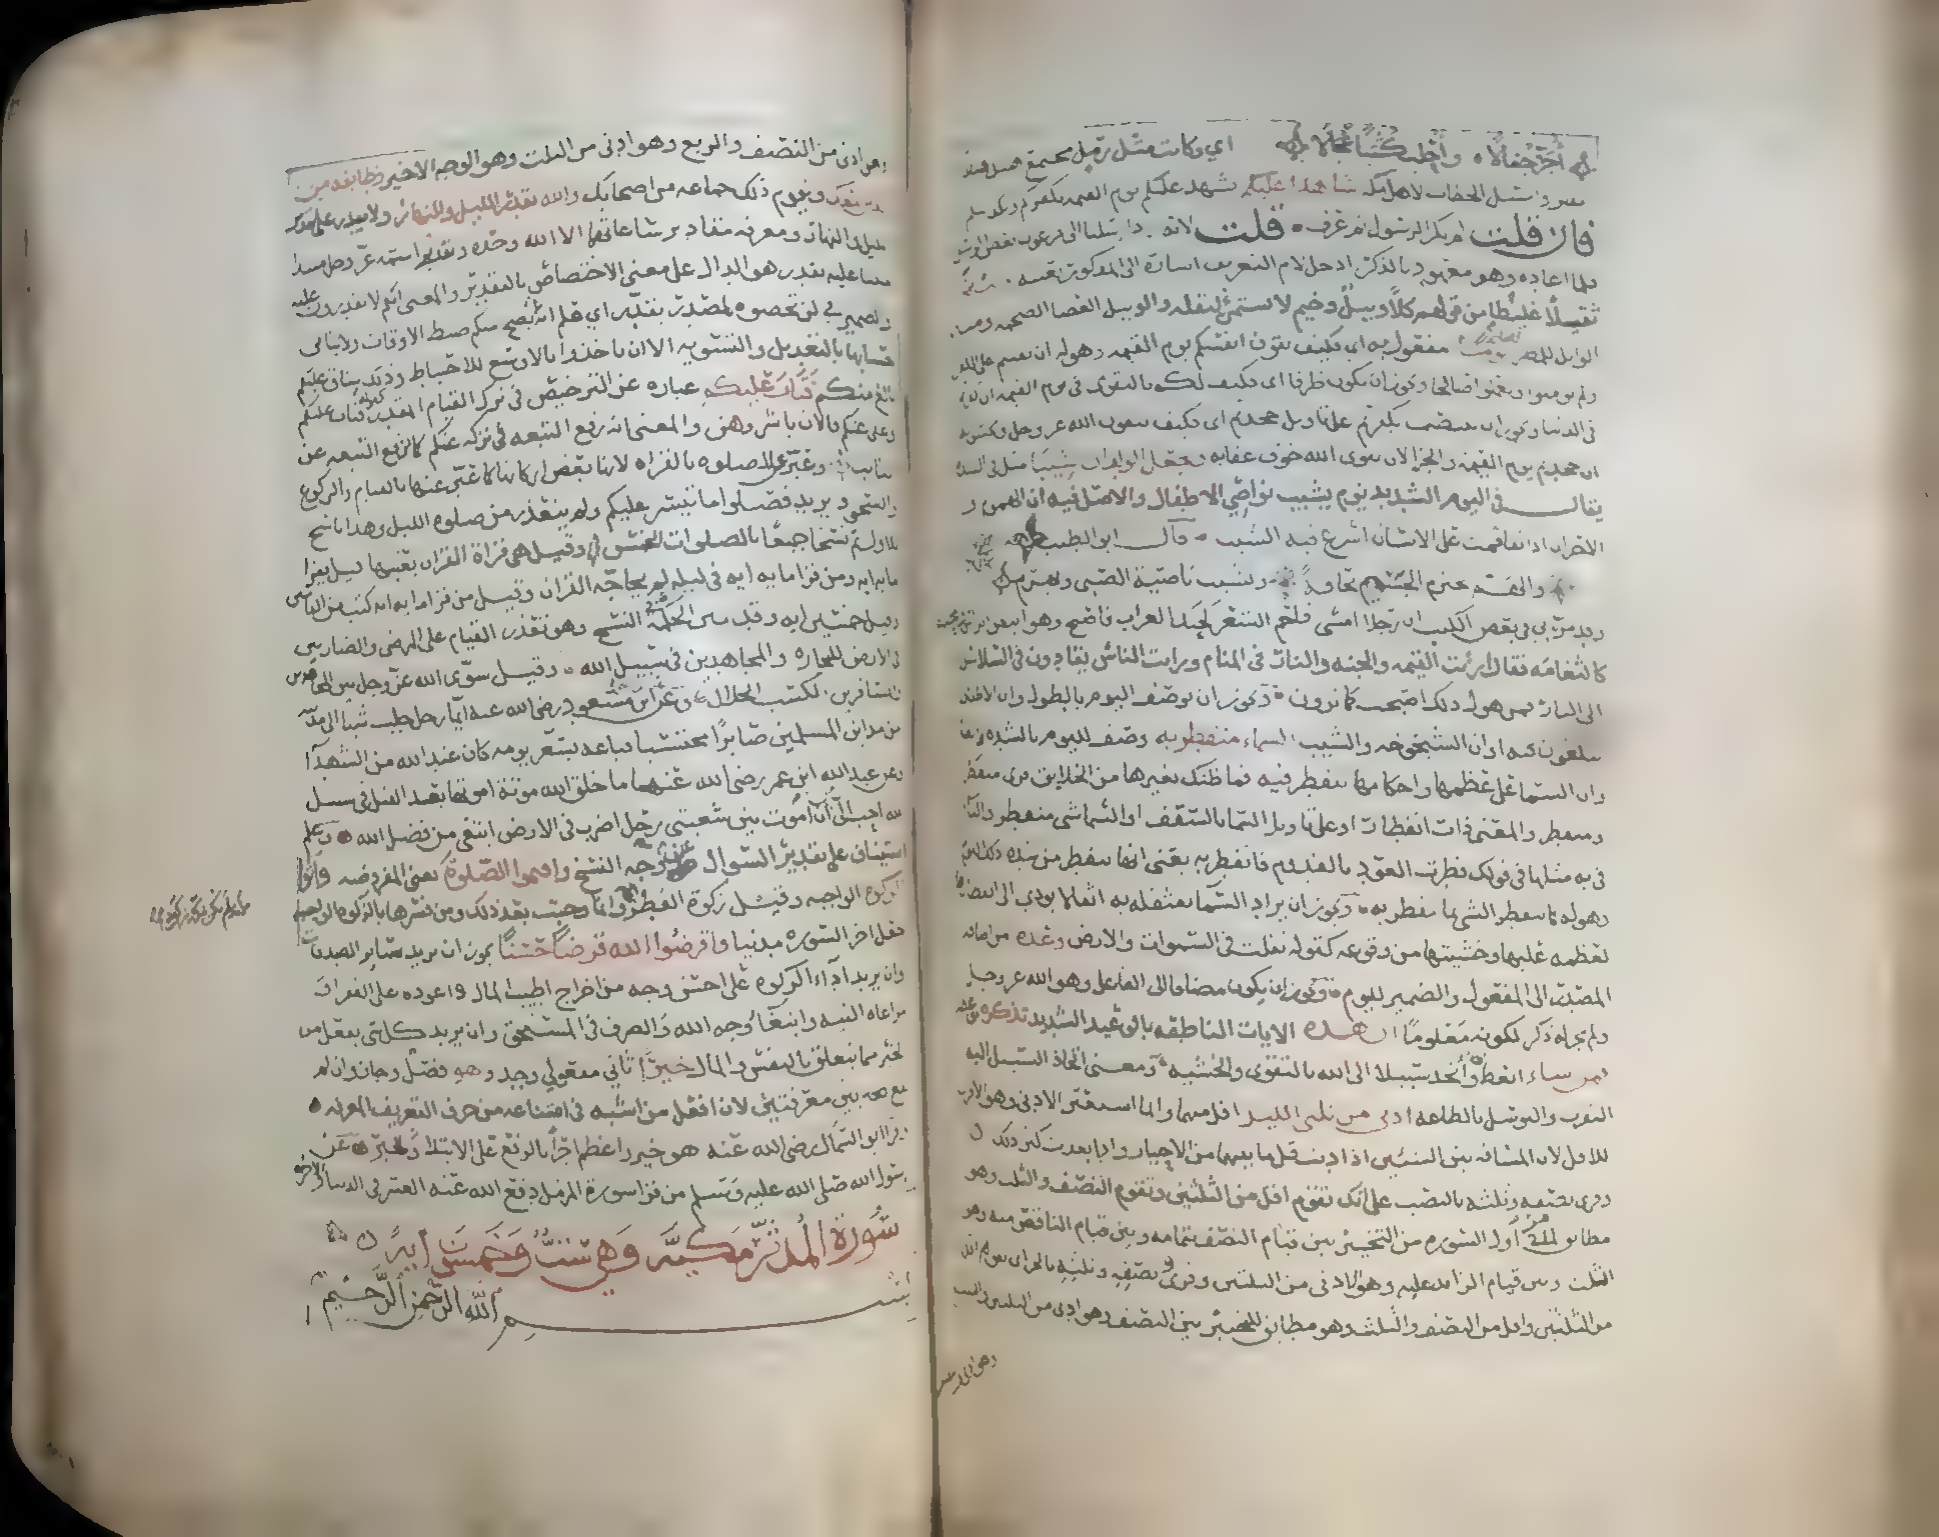 أجز جفالا واجلب كثبا عجالا اي وكانت مثل رمل مجتمع
الخطاب لاهل مكة شاهدا عليكم يشهد عليكم يوم القيمة بكفركم
فان قلت لم نكر الرسول ثم عرف قلت لانه
فلما اعاده وهو معهود بالذكر ادخل لام التعريف اشارة الى المذكور بعينه
ثقيلا غليظا من قولهم كلأ وبيل وخيم لا يستمرئ لثقله والوبيل العصا الضخمة ومنه
الوابل للمطر يوما مفعول به اي فكيف تتقون انفسكم يوم القيمة وهوله ان بقيتم على الكفر
ولم تومنوا وتعملوا صالحا ويجوز ان يكون ظرفا اي فكيف لكم بالتقوى في يوم القيمة ان كفرتم
في الدنيا ويجوز ان ينتصب بكفرتم على تاويل جحدتم اي فكيف تتقون الله عز وجل وتخشونه
ان جحدتم يوم القيمة والجزا لان تقوى الله خوف عقابه يجعل الولدان شيبا مثل في الشدة
يقال في اليوم الشديد يوم يشيب نواصي الاطفال والاصل فيه ان الهموم و
الاحزان اذا تفاقمت على الانسان اسرع فيه الشيب قال ابو الطيب
والهم يخترم الجسيم نحافة ويشيب ناصية الصبي ويهرم
وقد مر بي في بعض الكتب ان رجلا امسى فاحم الشعر كحنك الغراب فاصبح وهو ابيض
كالثغامة فقال اريت القيمة والجنة والنار في المنام ورايت الناس يقادون في السلاسل
الى النار فمن هول ذلك اصبحت كما ترون ويجوز ان يوصف اليوم بالطول وان الاطفال
يبلغون فيه اوان الشيخوخة والشيب السماء منفطر به وصف لليوم بالشدة ايضا
وان السما على عظمها واحكامها تنفطر فيه فما ظنك بغيرها من الخلايق وقرى منفطر
ومتفطر والمعنى ذات انفطار او على تاويل السما بالسقف او السما شي منفطر والبا
في به مثلها في قولك فطرت العود بالقدوم فانفطر به يعني انها تنفطر من شدة ذلك اليوم
وهوله كما ينفطر الشي بما يفطر به ويجوز ان يراد السما مثقلة به اثقالا يودي الى انفطارها
لعظمه عليها وخشيتها من وقوعه كقوله ثقلت في السموات والارض وعده من اضافة
المصدر الى المفعول والضمير لليوم ويجوز ان يكون مضافا الى الفاعل وهو الله عز وجل
ولم يجر له ذكر لكونه معلوما ان هذه الايات الناطقة بالوعيد الشديد تذكرة
فمن شاء اتعظ واتخذ سبيلا الى الله بالتقوى والخشية ومعنى اتخاذ السبيل اليه
التقرب والتوسل بالطاعة ادنى من ثلثي الليل اقل منهما وانما استعير الادنى وهو الاقرب
للاقل لان المسافة بين الشيئين اذا دنت قل ما بينهما من الاحياز واذا بعدت كثر ذلك
وقرى نصفه وثلثه بالنصب على انك تقوم اقل من الثلثين وتقوم النصف والثلث وهو
مطابق لما مر في اول السورة من التخيير بين قيام النصف بتمامه وبين قيام الناقص منه وهو
الثلث وبين قيام الزايد عليه وهو الادنى من الثلثين وقرى ونصفه وثلثه بالجر اي تقوم اقل
من الثلثين واقل من النصف والثلث وهو مطابق للتخيير بين النصف وهو ادنى من الثلثين والثلث
وهو ادنى من النصف والربع وهو ادنى من الثلث وهو الوجه الاخير وطايفة من
الذين معك ويقوم ذلك جماعة من اصحابك والله يقدر الليل والنهار ولا يقدر على تقدير
الليل والنهار ومعرفة مقادير ساعاتهما الا الله وحده وتقديم اسمه عز وجل مبتدا
مبنيا عليه يقدر هو الدال على معنى الاختصاص بالتقدير والمعنى انكم لا تقدرون عليه
والضمير في لن تحصوه لمصدر يقدر اي علم انه لا يصح منكم ضبط الاوقات ولا يتاتى
حسابها بالتعديل والتسوية الا ان تاخذوا بالاوسع للاحتياط وذلك شاق عليكم
بالغ منكم فتاب عليكم عبارة عن الترخيص في ترك القيام المقدر كقوله فتاب عليكم
وعفى عنكم فالان باشروهن والمعنى انه رفع التبعة في تركه عنكم كما يرفع التبعة عن
التايب وعبر عن الصلوة بالقراة لانها بعض اركانها كما عبر عنها بالقيام والركوع
والسجود يريد فصلوا ما تيسر عليكم ولم يتعذر من صلوة الليل وهذا ناسخ
للاول ثم نسخا جميعا بالصلوات الخمس وقيل هي قراة القران بعينها قيل يقرا
ماية اية ومن قرا ماية اية في ليلة لم يحاجه القران وقيل من قرا ماية اية كتب من القانتين
وقيل خمسين اية وقد بين الحكمة في النسخ وهو تعذر القيام على المرضى والضاربين
في الارض للتجارة والمجاهدين في سبيل الله وقيل سوى الله عز وجل بين المجاهدين
والمسافرين لكسب الحلال وعن ابن مسعود رضي الله عنه ايما رجل جلب شيا الى مدينة
من مداين المسلمين صابرا محتسبا فباعه بسعر يومه كان عند الله من الشهدآ
وعن عبد الله ابن عمر رضي الله عنهما ما خلق الله موتة اموتها بعد القتل في سبيل
الله احب الي ان اموت بين شعبتي رحل اضرب في الارض ابتغي من فضل الله وعلم
استيناف على تقدير السوال عن وجه النسخ واقيموا الصلوة يعني المفروضة واتوا
الزكوة الواجبة وقيل زكوة الفطر وانما وجبت بعد ذلك ومن فسرها بالزكوة الواجبة
جعل اخر السورة مدنيا واقرضوا الله قرضا حسنا يجوز ان يريد ساير الصدقات
وان يريد اداء الزكوة على احسن وجه من اخراج اطيب المال واعوده على الفقراء
ومراعاة النية وابتغا وجه الله والصرف الى المستحق وان يريد كل شي يفعل من
الخير مما يتعلق بالنفس والمال خيرا ثاني مفعولي وجد وهو فصل وجاز وان لم
يقع بين معرفتين لان افعل من اشبه في امتناعه من حرف التعريف المعرفة
وقرا ابو السمال رضي الله عنه هو خير واعظم اجرا بالرفع على الابتدا والخبر عن
رسول الله صلى الله عليه وسلم من قرا سورة المزمل دفع الله عنه العسر في الدنيا والاخرة
سورة المدثر مكية وهي ست وخمسون اية
بسم الله الرحمن الرحيم